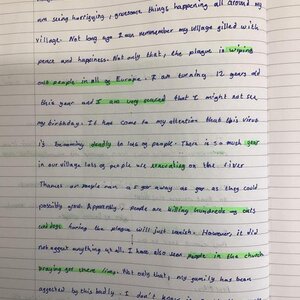 am seeing horrifying, gruesome things happening all around my
village. Not long ago I can remember my village filled with
peace and happiness. Not only that, the plague is wiping
out people in all of Europe. I am turning 12 years old
this year and I am very scared that I might not see
my birthday. It has come to my attention that this virus
is becoming deadly to lots of people. There is so much fear
in our village lots of people were evacuating on the river
Thames or people ran a far away as far as they could
possibly go. Apparently, people are killing hundreds of cats
and dogs hoping the plague will just vanish. However, it did
not affect anything at all. I have also seen people in the church
praying for there lives. Not only that, my family has been
affected by this badly. I don't